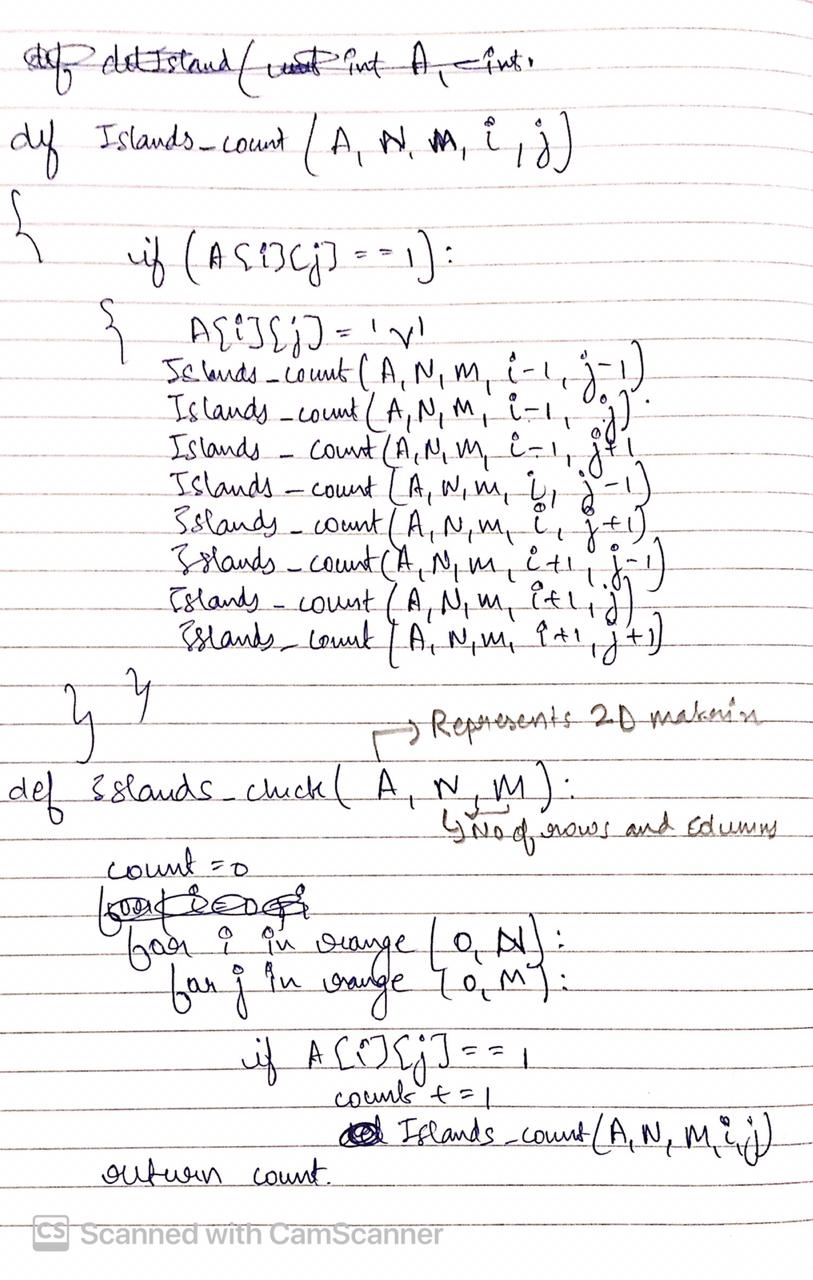 def detIsland( int A, int.
def Islands_count (A, N, M, i, j)
{
if (A[i][j] == 1):
{ A[i][j] = 'v'
Islands_count(A, N, M, i-1, j-1)
Islands_count(A, N, M, i-1, j).
Islands_count(A, N, M, i-1, j+1
Islands_count(A, N, M, i, j-1)
Islands_count(A, N, M, i, j+1)
Islands_count(A, N, M, i+1, j-1)
Islands_count(A, N, M, i+1, j)
Islands_count(A, N, M, i+1, j+1)
} }
Represents 2D matrix
def Islands_check( A, N, M):
No of rows and columns
count = 0
for i in range (0, N):
for j in range (0, M):
if A[i][j] == 1
count += 1
Islands_count(A, N, M, i, j)
return count.
CS Scanned with CamScanner